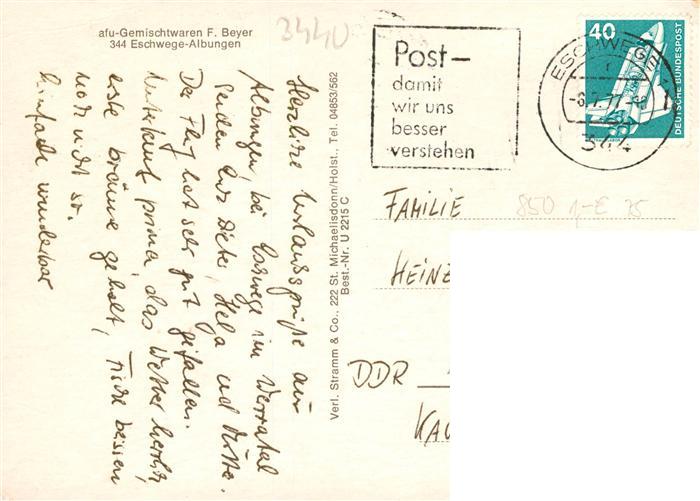 afu-Gemischtwaren F. Beyer
344 Eschwege-Albungen
3440
Herzliche Urlaubsgrüße aus
Albungen bei Eschwege im Werratal
senden Euch
Helga und
Der Flug hat sehr gut gefallen.
Unterkunft prima, das Wetter herrlich
erste Bräune geholt, Fische beissen
noch nicht so.
Einfach wunderbar
Verl. Stramm & Co., 222 St. Michaelisdonn/Holst., Tel. 04853/562
Best.-Nr. U 2215 C
Post–
damit
wir uns
besser
verstehen
ESCHWEGE 1
-8.7.77
344
40
DEUTSCHE BUNDESPOST
FAMILIE
850 1,-E 75
HEINZ
DDR
KAU